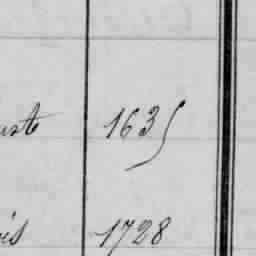 ust 1635
is 1728